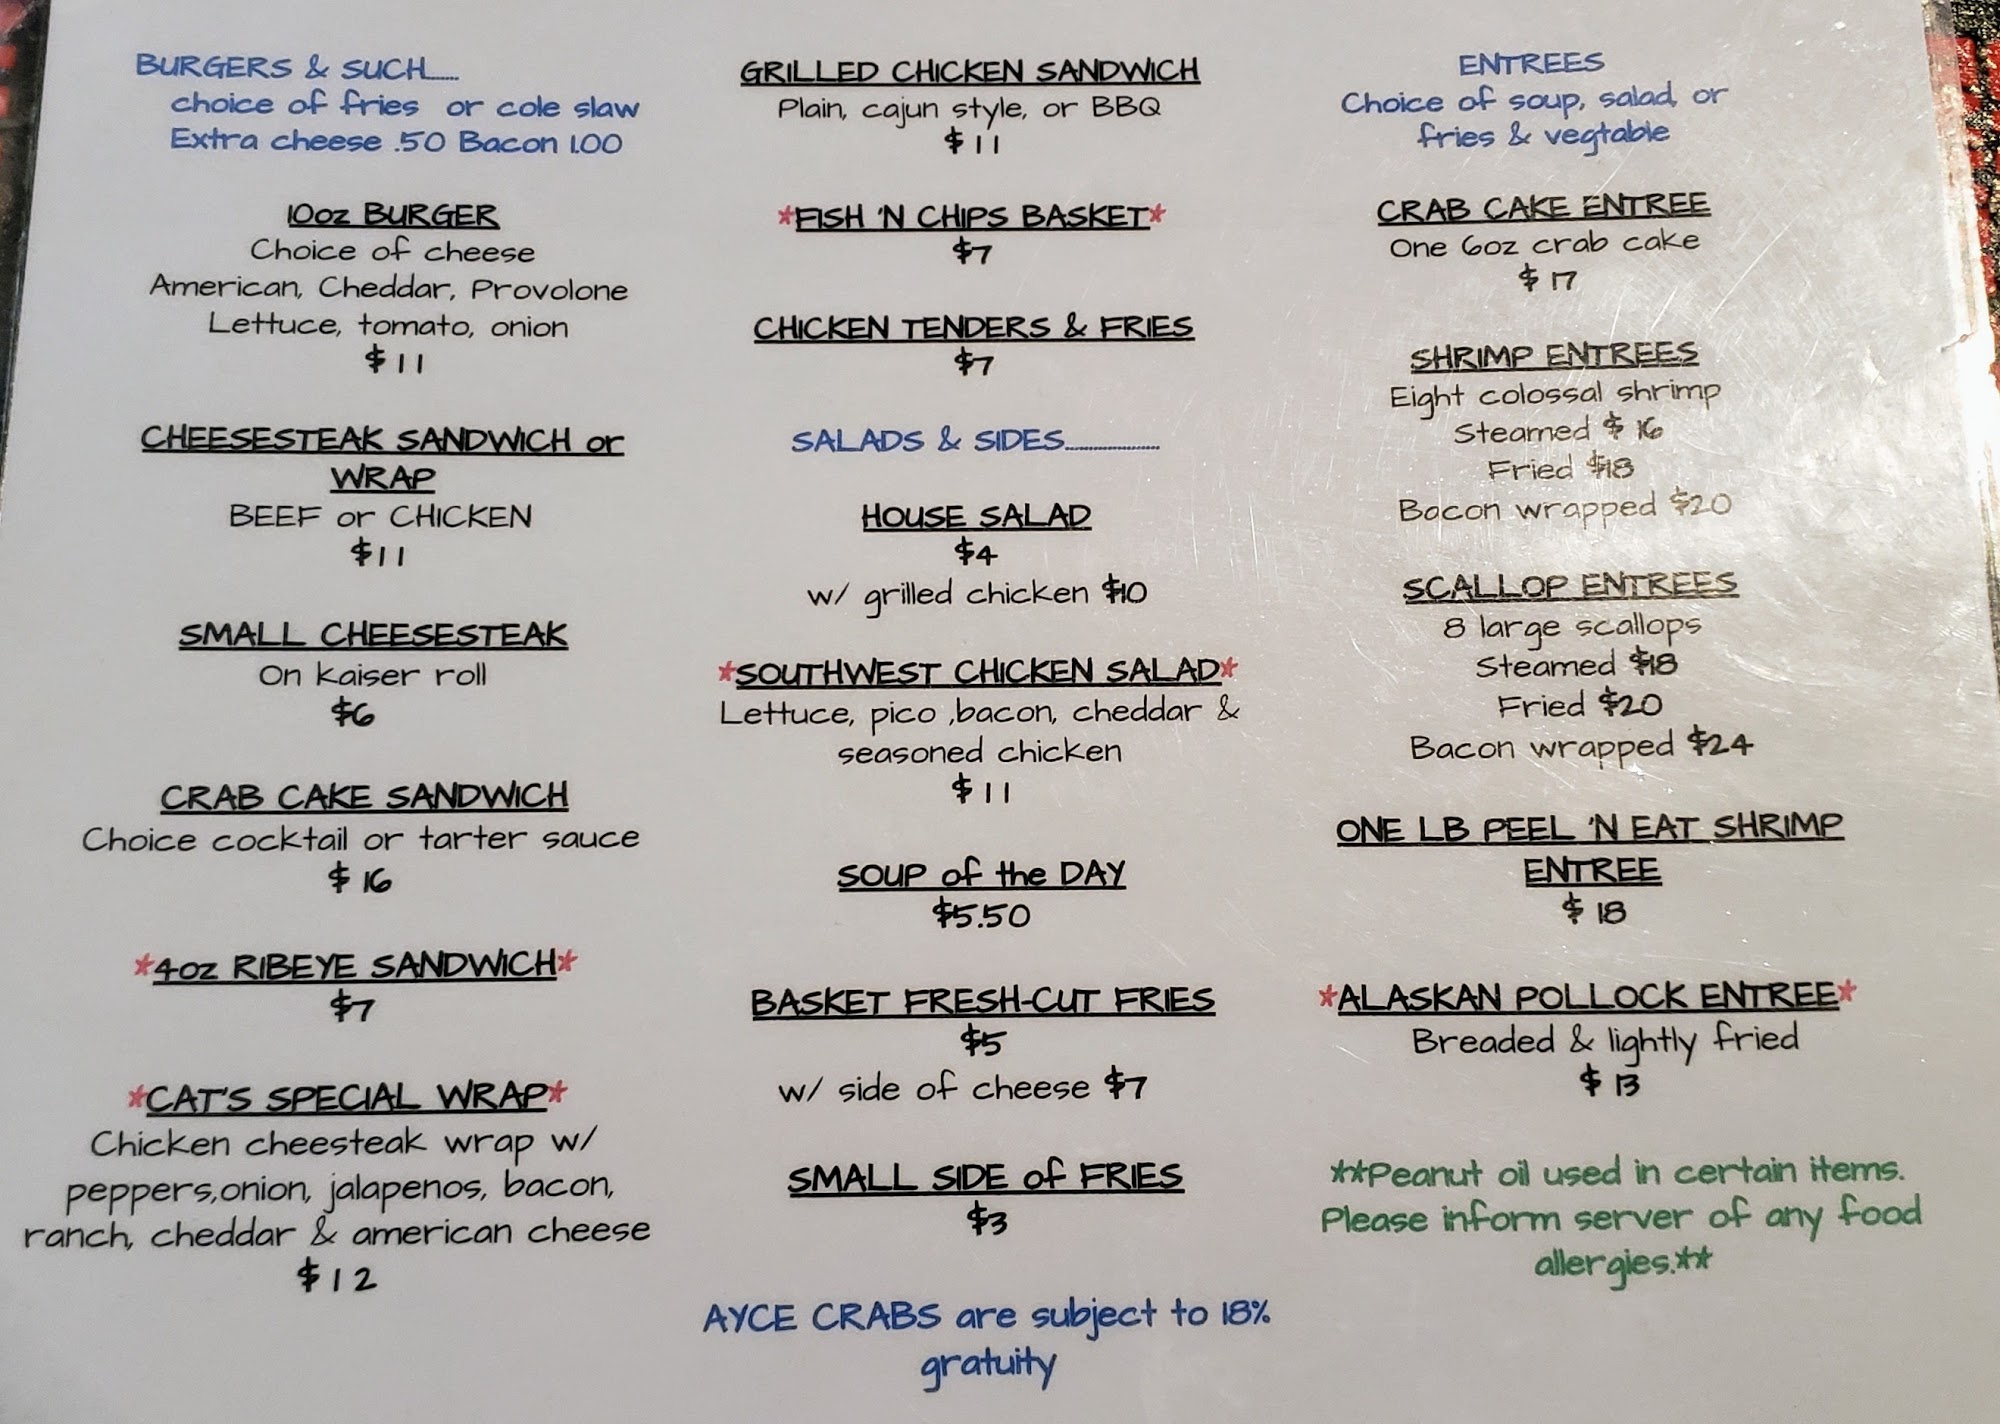 BURGERS & SUCH......
choice of fries or cole slaw
Extra cheese .50 Bacon 1.00
10oz BURGER
Choice of cheese
American, Cheddar, Provolone
Lettuce, tomato, onion
$11
CHEESESTEAK SANDWICH or
WRAP
BEEF or CHICKEN
$11
SMALL CHEESESTEAK
On kaiser roll
$6
CRAB CAKE SANDWICH
Choice cocktail or tarter sauce
$ 16
*4oz RIBEYE SANDWICH*
$7
*CAT'S SPECIAL WRAP*
Chicken cheesteak wrap w/
peppers,onion, jalapenos, bacon,
ranch, cheddar & american cheese
$12
GRILLED CHICKEN SANDWICH
Plain, cajun style, or BBQ
$11
*FISH 'N CHIPS BASKET*
$7
CHICKEN TENDERS & FRIES
$7
SALADS & SIDES....................
HOUSE SALAD
$4
w/ grilled chicken $10
*SOUTHWEST CHICKEN SALAD*
Lettuce, pico ,bacon, cheddar &
seasoned chicken
$11
SOUP of the DAY
$5.50
BASKET FRESH-CUT FRIES
$5
w/ side of cheese $7
SMALL SIDE of FRIES
$3
AYCE CRABS are subject to 18%
gratuity
ENTREES
Choice of soup, salad, or
fries & vegtable
CRAB CAKE ENTREE
One 6oz crab cake
$ 17
SHRIMP ENTREES
Eight colossal shrimp
Steamed $ 16
Fried $18
Bacon wrapped $20
SCALLOP ENTREES
8 large scallops
Steamed $18
Fried $20
Bacon wrapped $24
ONE LB PEEL 'N EAT SHRIMP
ENTREE
$ 18
*ALASKAN POLLOCK ENTREE*
Breaded & lightly fried
$ 13
**Peanut oil used in certain items.
Please inform server of any food
allergies.**